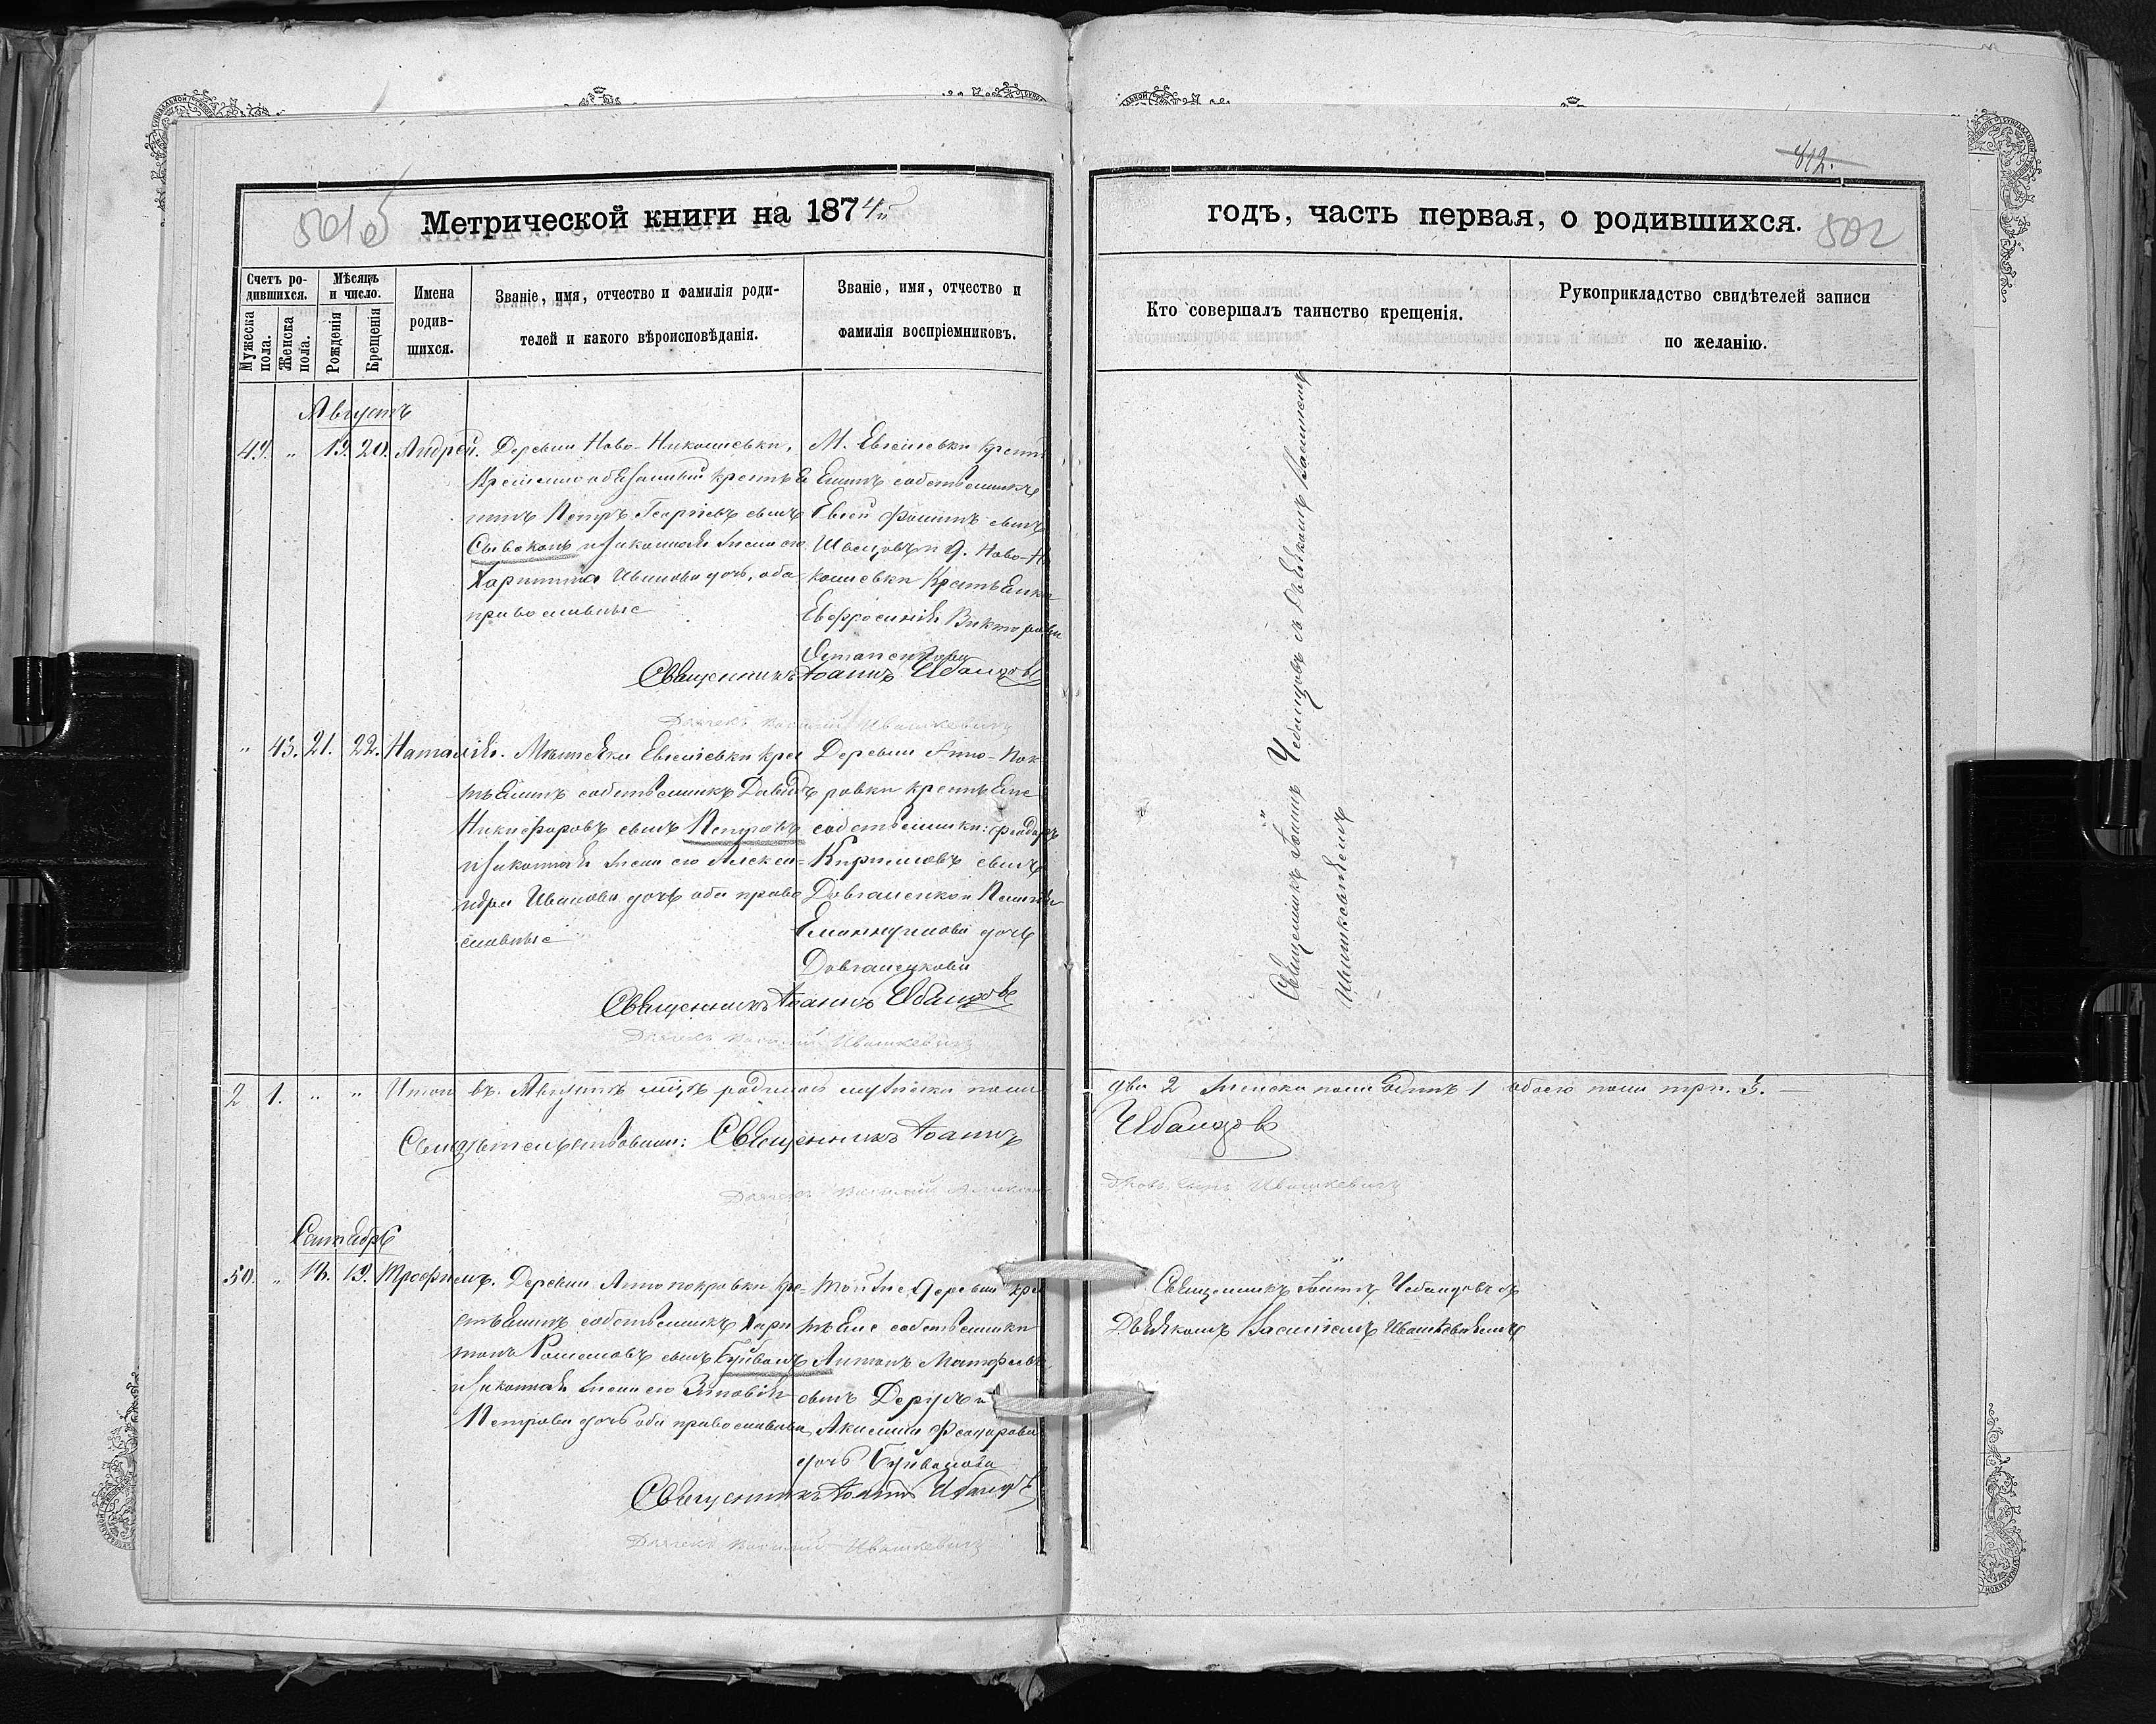 812.
501об
Метрической книги на 1874й
годъ, часть первая, о родившихся.
502
Счетъ ро-
дившихся.
Мѣсяцъ
и число.
Мужеска
пола.
Женска
пола.
Рожденія
Крещенія
Имена
родив-
шихся.
Званіе, имя, отчество и фамилія роди-
телей и какого вѣроисповѣданія.
Званіе, имя, отчество и
фамилія воспріемниковъ.
Кто совершалъ таинство крещенія.
Рукоприкладство свидѣтелей записи
по желанію.
Августъ
49. " 19. 20. Андрей.
Деревни Ново-Николаевки,
Временно обязанный крестья
нинъ Петръ Георгіевъ сынъ
Сывоконь и законная жена его
Харитина Иванова дочь, оба
православные
М. Евгеніевки крест
янинъ собственникъ
Евсей Фоминъ сынъ
Швецовъ и д. Ново-Ни
колаевки Крестьянка
Евфросинія Викторова
Священникъ Іоаннъ Чебанцовъ
Дьячекъ Василій Ивашкевичъ
" 43. 21. 22. Наталія.
Мѣстечка Евгеніевки крес
тьянинъ собственникъ Давидъ
Никифоровъ сынъ Петровъ
и законная жена его Алекса-
ндра Иванова дочь оба право
славные
Деревни Анно-Пок
ровки крестьяне
собственники: Феодоръ
Кирилловъ сынъ
Довгаленко и
Еммануилова дочь
Довгаленкова
Священникъ Іоаннъ Чебанцовъ
Дьячекъ Василій Ивашкевичъ
Священникъ Іоаннъ Чебанцовъ съ Дьячкомъ Василіемъ
Ивашкевичемъ
2 1. " " Итого въ Августѣ м-цѣ родилось мужеска пола
два 2 женска пола одинъ 1 обоего пола три. 3.
Свидѣтельствовали: Священникъ Іоаннъ
Чебанцовъ
Дьячекъ Василій
Ивашкевичъ
Сентябрь
50. " 19. Трофимъ.
Деревни Аннопокровки кре-
стьянинъ собственникъ Хари
тонъ Романовъ сынъ Буйволъ
и законная жена его Зиновія
Петрова дочь оба православные
Той же деревни кре
тьяне собственники
Антонъ Матфеевъ
сынъ
Акилина Феодорова
дочь Буйволова
Священникъ Іоаннъ Чебанцовъ
Дьячекъ Василій Ивашкевичъ
Священникъ Іоаннъ Чебанцовъ съ
Дьячкомъ Василіемъ Ивашкевичемъ